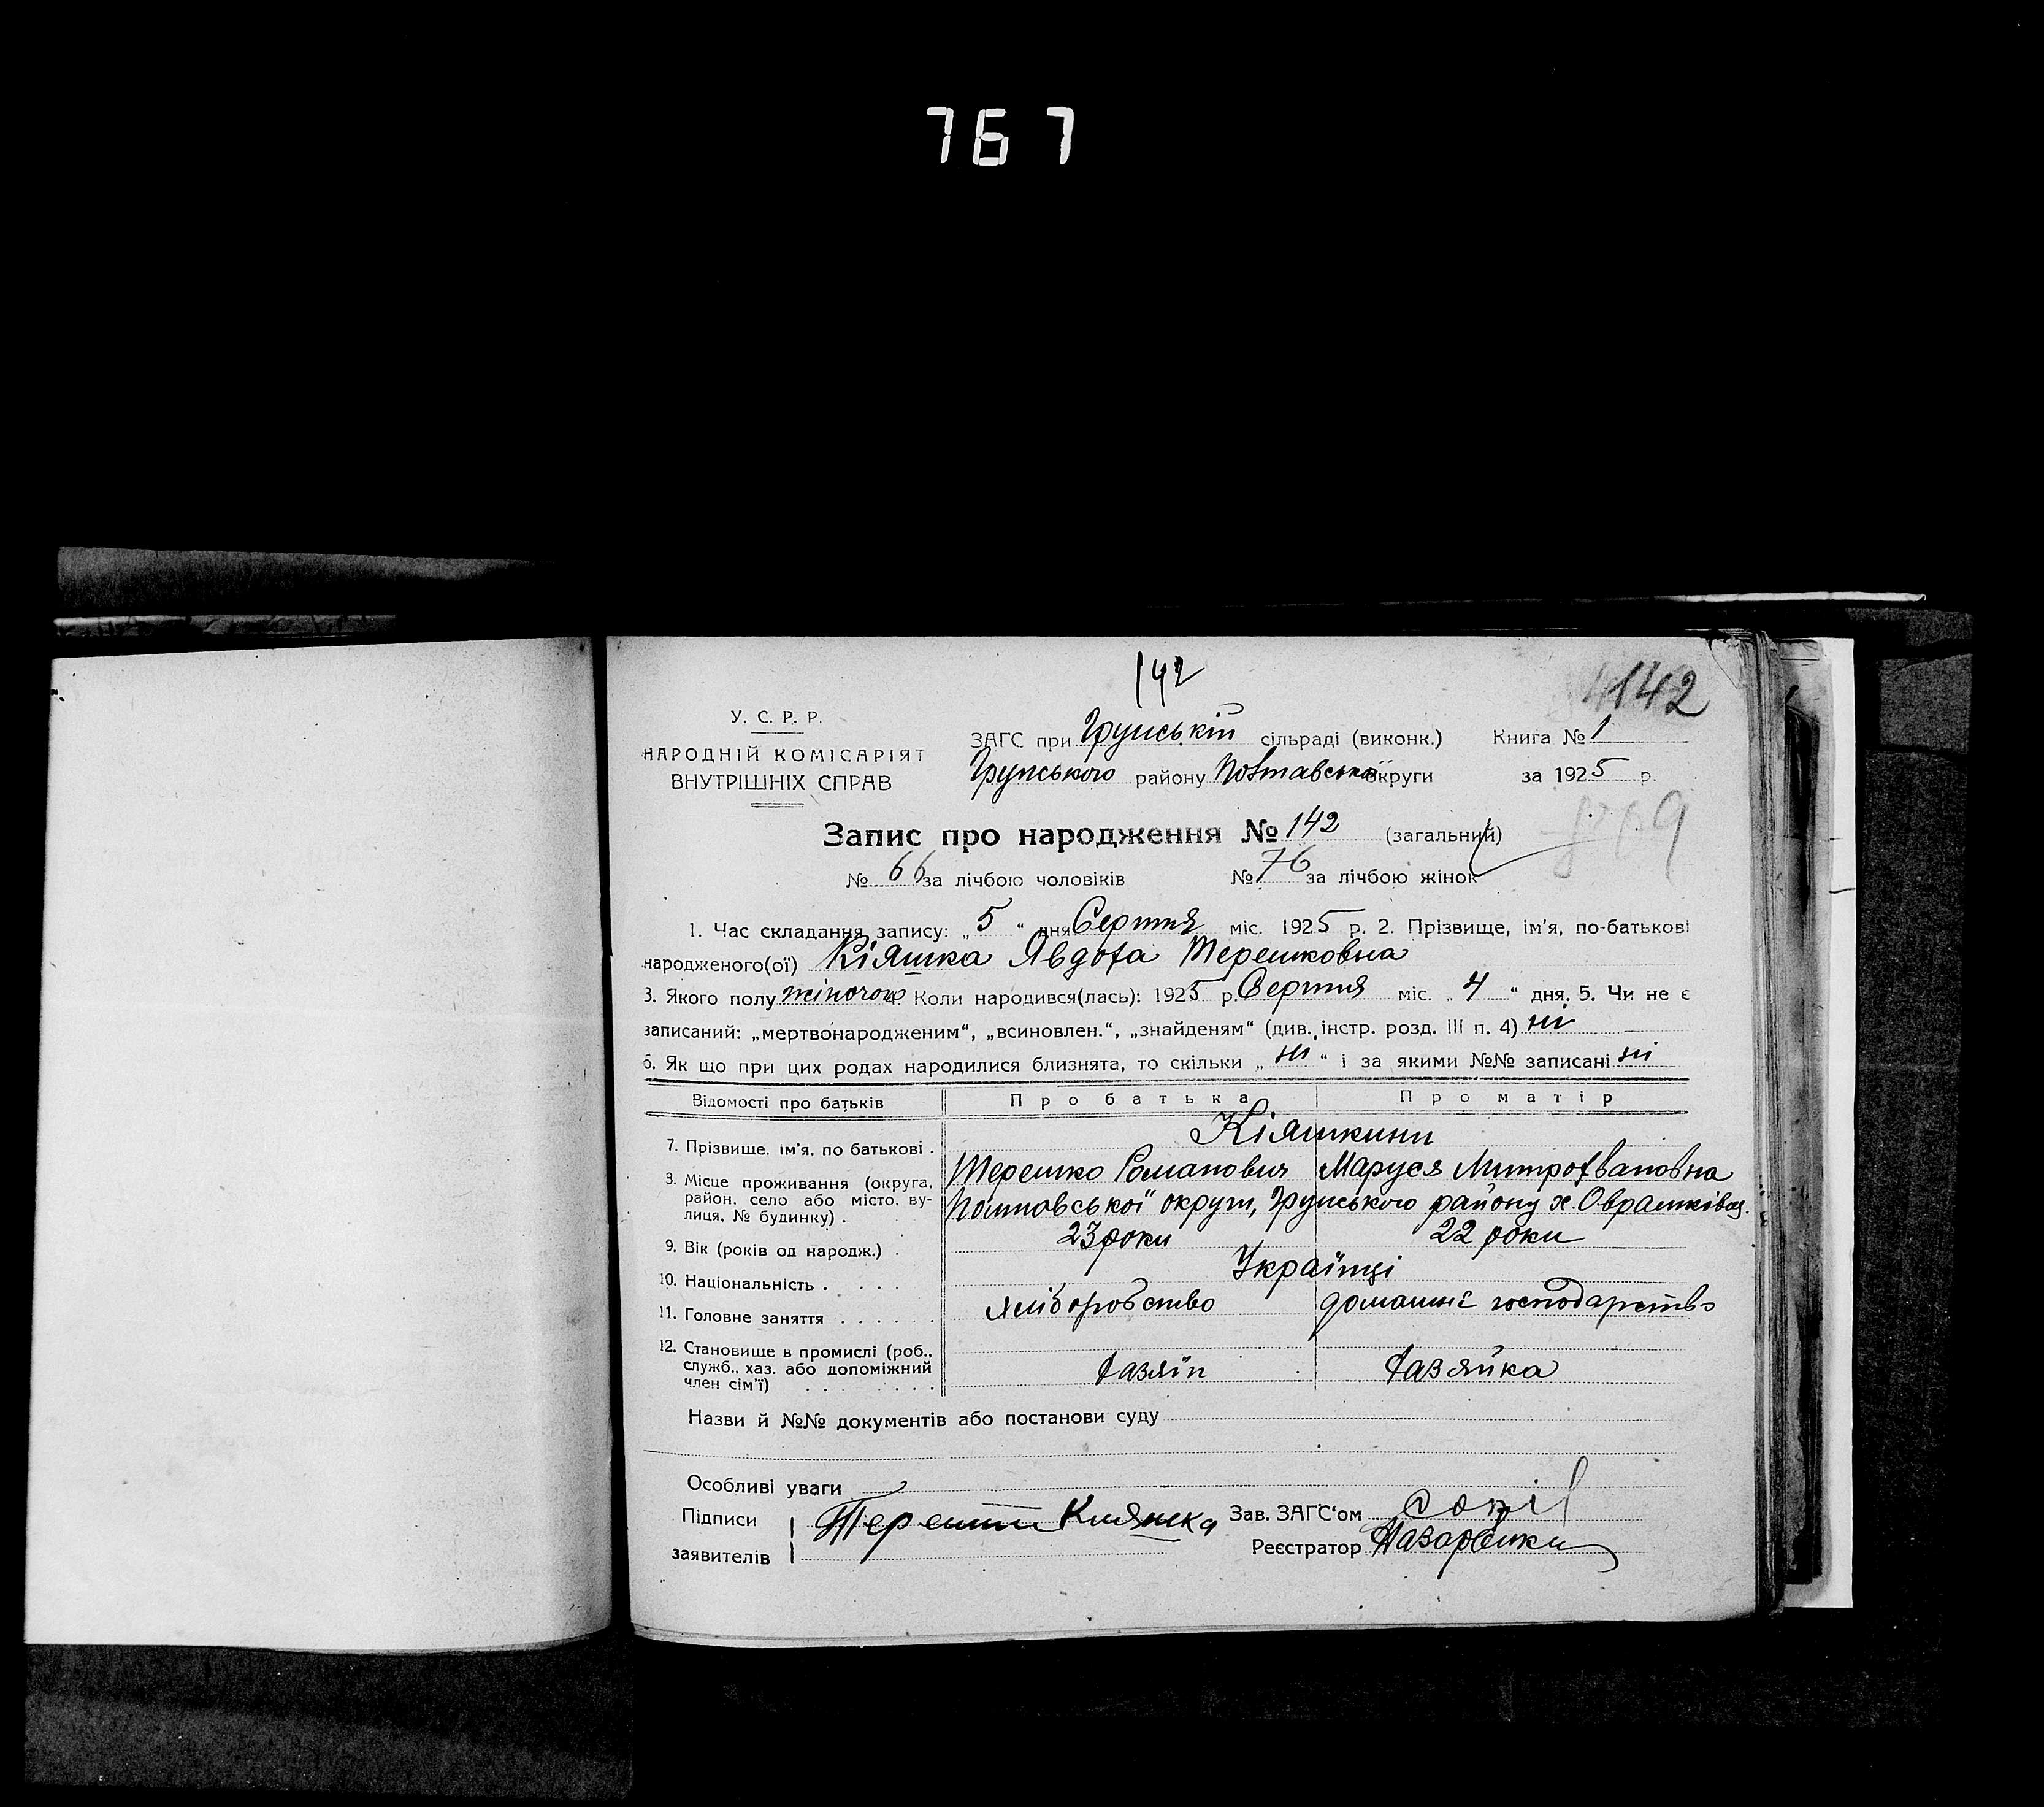 767
142
4142
У. С. Р. Р.
НАРОДНІЙ КОМІСАРІЯТ
ВНУТРІШНІХ СПРАВ
ЗАГС при Грунській сільраді (виконк.) Книга № 1
Грунського району Полтавської округи за 1925 р.
Запис про народження № 142 (загальний)
№ 66 за лічбою чоловіків № 76 за лічбою жінок
1. Час складання запису: „5“ дня Серпня міс. 1925 р. 2. Прізвище, ім'я, по-батькові
народженого(ої) Кіяшка Явдоха Терешковна
3. Якого полу жіночого Коли народився(лась): 1925 р. Серпня міс. „4“ дня. 5. Чи не є
записаний: „мертвонародженим“, „всиновлен.“, „знайденям“ (див. інстр. розд. III п. 4) ні
6. Як що при цих родах народилися близнята, то скільки „ні“ і за якими №№ записані ні
Відомості про батьків Про батька Про матір
Кіяшкини
7. Прізвище, ім'я, по батькові . Терешко Романович Маруся Митрофановна
8. Місце проживання (округа, район, село або місто, вулиця, № будинку) . Полтовської округи, Грунського району х. Оврамківщ.
9. Вік (років од народж.) . 23 роки 22 роки
10. Національність . . . . Українці
11. Головне заняття . . . . . . хліборобство домашнє господарство
12. Становище в промислі (роб., служб., хаз. або допоміжний член сім'ї) . . . . . . хазяїн хазяйка
Назви й №№ документів або постанови суду
Особливі уваги
Підписи заявителів Кияшка
Зав. ЗАГС'ом
Реєстратор Назаренко